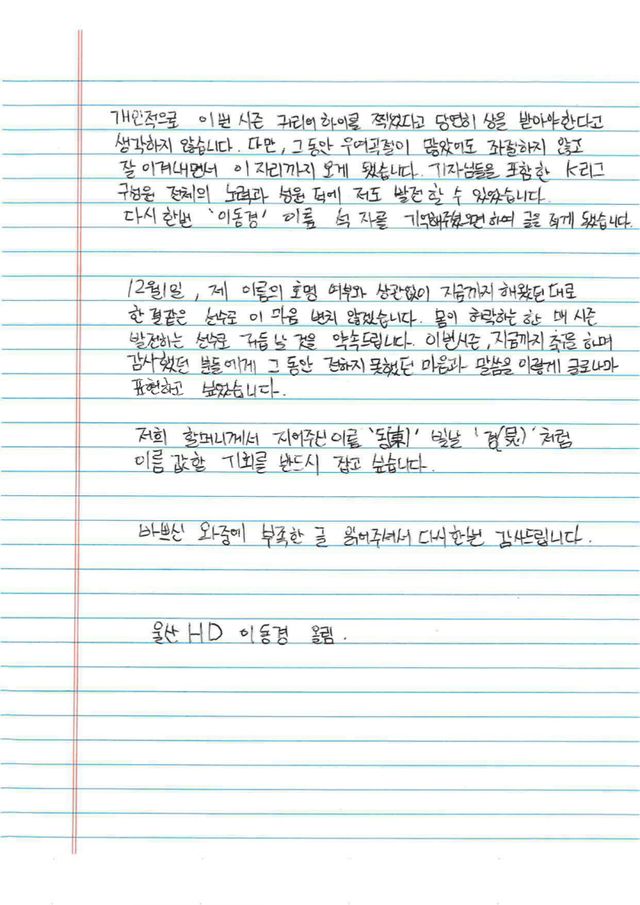 개인적으로 이번 시즌 커리어하이를 찍었다고 당연히 상을 받아야한다고
생각하지 않습니다. 다만, 그동안 우여곡절이 많았어도 좌절하지 않고
잘 이겨내면서 이 자리까지 오게 됐습니다. 기자님들을 포함한 K리그
구성원 전체의 노력과 성원 덕에 저도 발전할 수 있었습니다.
다시 한번 '이동경' 이름 석 자를 기억해주셨으면 하여 글을 적게 됐습니다.
12월1일, 제 이름의 호명 여부와 상관없이 지금까지 해왔던 대로
한결같은 선수로 이 마음 변치 않겠습니다. 몸이 허락하는 한 매 시즌
발전하는 선수로 거듭 날 것을 약속드립니다. 이번시즌, 지금까지 축구를 하며
감사했던 분들에게 그 동안 전하지 못했던 마음과 말씀을 이렇게 글로나마
표현하고 싶었습니다.
저희 할머니께서 지어주신 이름 '동(東)' 빛날 '경(炅)' 처럼
이름 값할 기회를 반드시 잡고 싶습니다.
바쁘신 와중에 부족한 글 읽어주셔서 다시한번 감사드립니다.
울산 HD 이동경 올림.